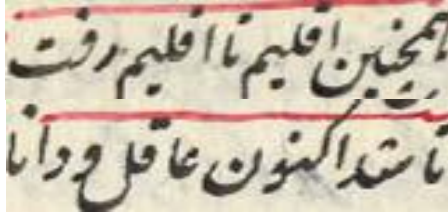 همچنین اقلیم تا اقلیم رفت
تا شد اکنون عاقل و دانا